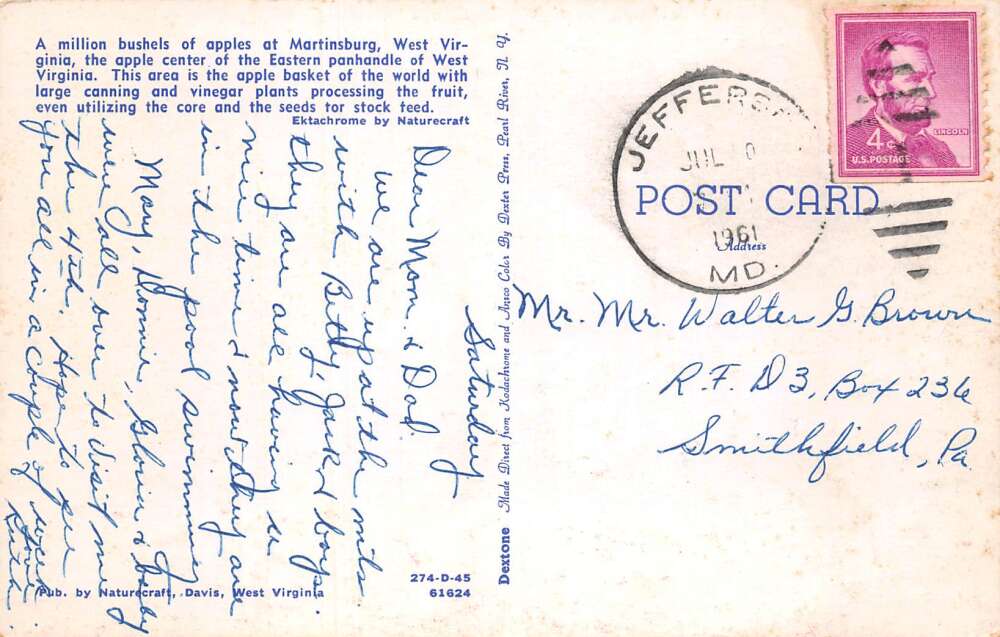 A million bushels of apples at Martinsburg, West Vir-
ginia, the apple center of the Eastern panhandle of West
Virginia. This area is the apple basket of the world with
large canning and vinegar plants processing the fruit,
even utilizing the core and the seeds for stock feed.
Ektachrome by Naturecraft
Saturday
Dear Mom & Dad.
we are up at the mts
with Betty, Jack & boys.
they are all having a
nice time & now they are
in the pool swimming
Mary, Donnie, Gloria & baby
were all over to visit me
the 4th. Hope to see
you all in a couple of week
Love
Ruth.
Pub. by Naturecraft, Davis, West Virginia
274-D-45
61624
Dextone Made Direct from Kodachrome and Ansco Color By Dexter Press, Pearl River, N. Y.
JEFFERS
JUL
1961
MD.
4¢
LINCOLN
U.S. POSTAGE
POST CARD
Address
Mr. Mr. Walter G. Brown
R.F.D 3, Box 236
Smithfield, Pa